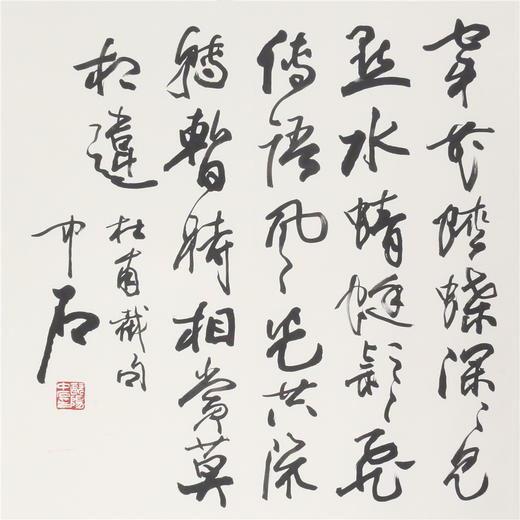 穿花蛺蝶深〻見
點水蜻蜓款〻飛
傳語風光共流
轉暫時相賞莫
相違
杜甫截句
中石